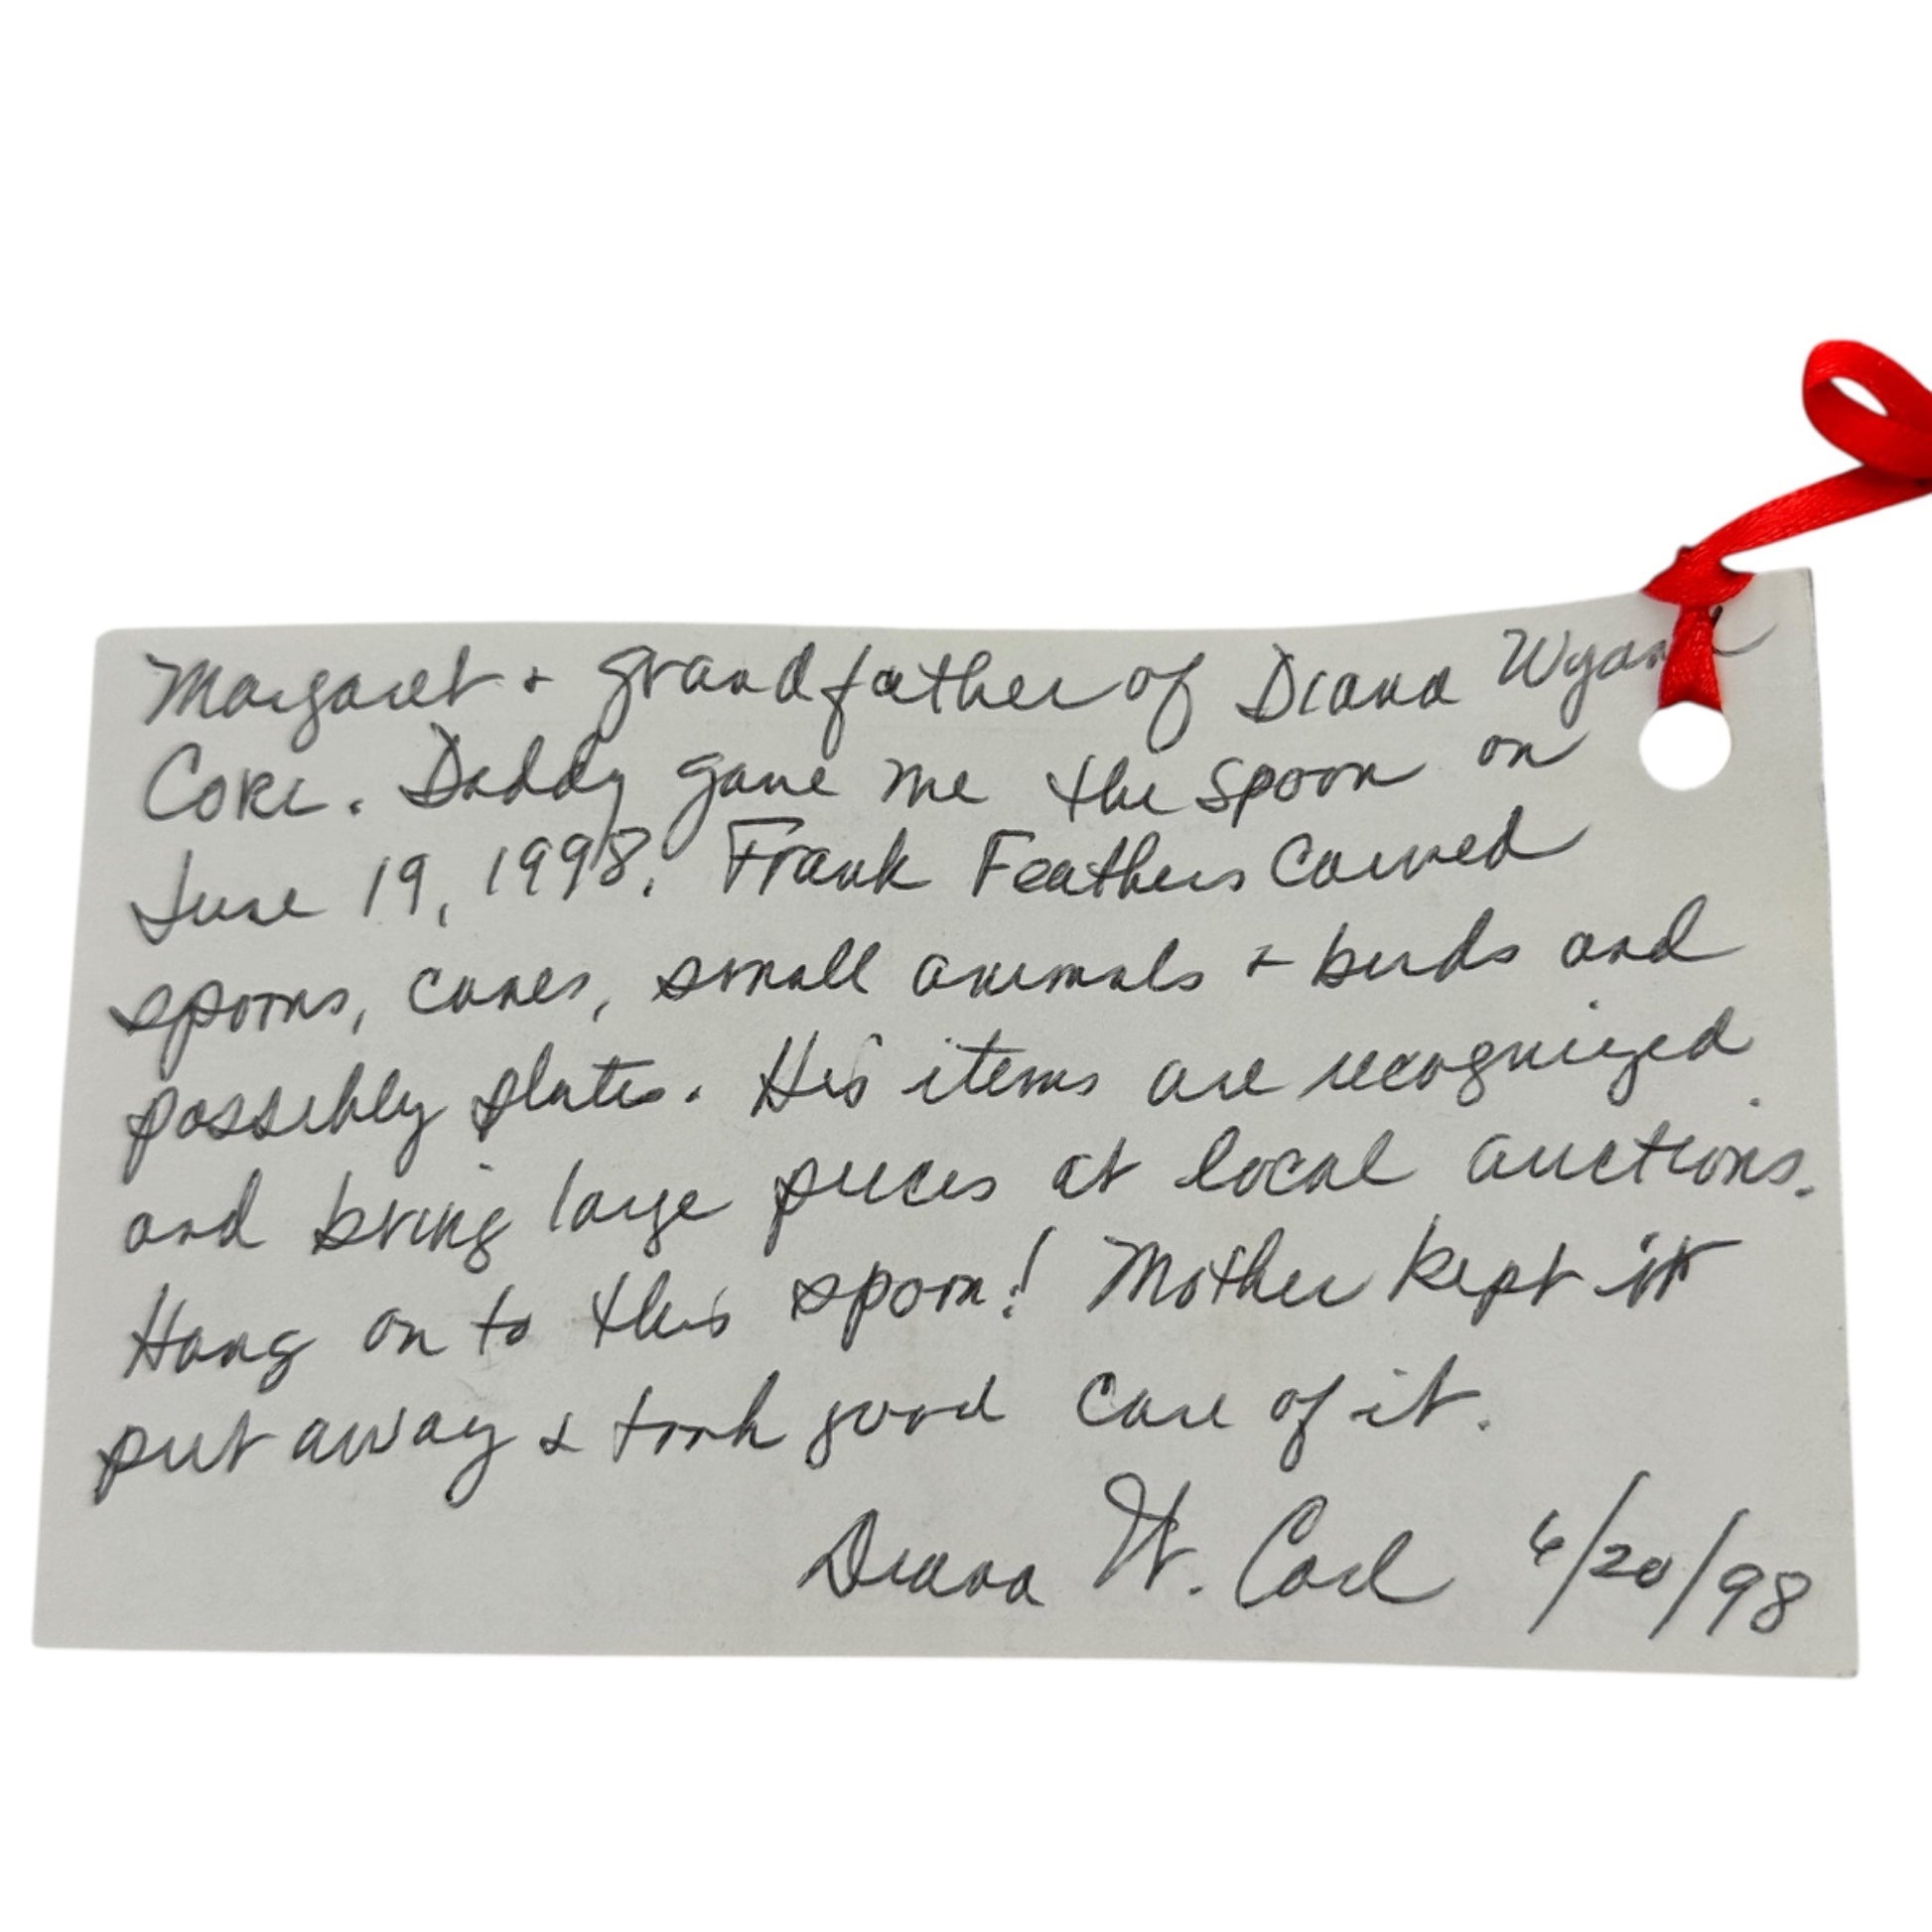 Margaret + grandfather of Diana
Daddy gave me the spoon on
June 19, 1998. Frank Feathers carved
spoons, canes, small animals + birds and
possibly plates. His items are recognized
and bring large prices at local auctions.
Hang on to this spoon! Mother kept it
put away & took good care of it.
Diana W. 6/20/98